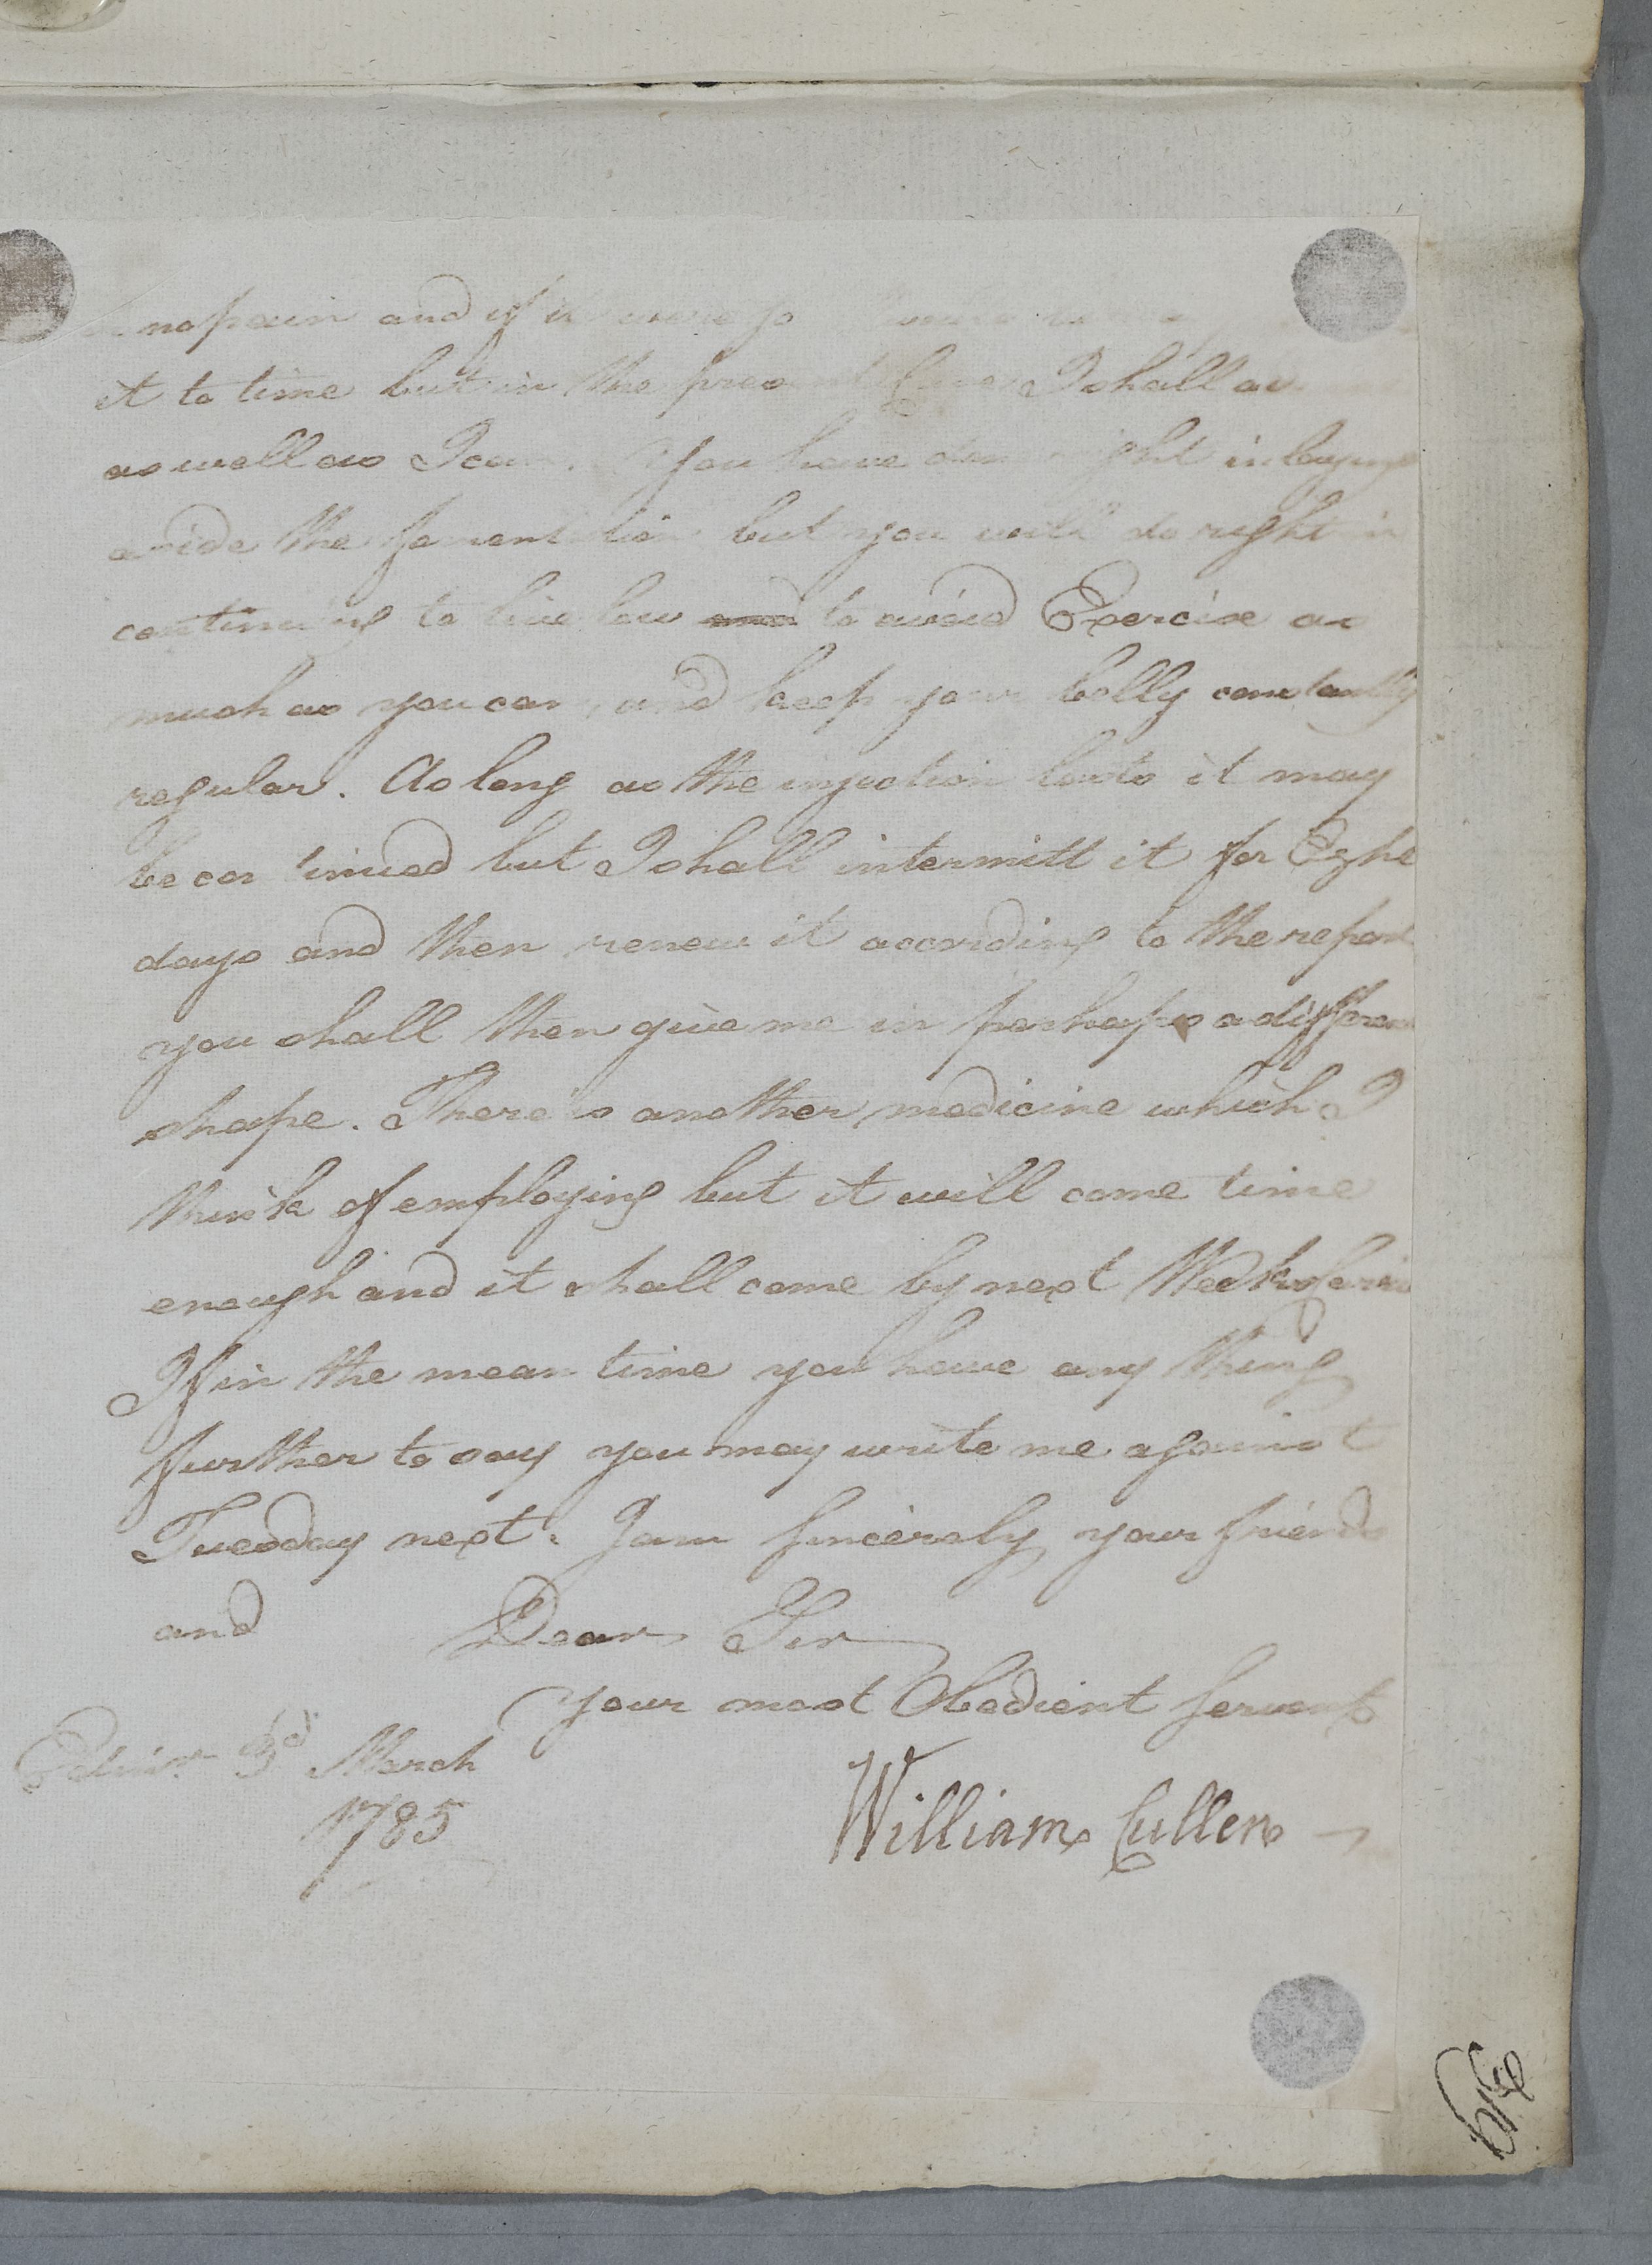 no pain and if it were so
it to time but in the present Case I shall
as well as I can. You have done right in laying
aside the fomentation but you will do right in
continuing to live low and to avoid Exercise as
much as you can, and keep your belly constantly
regular. As long as the injection lasts it may
be continued but I shall intermitt it for Eight
days and then renew it according to the report
you shall then give me in perhaps a different
shape. There is another medicine which I
think of employing but it will come time
enough and it shall come by next Weeks Carrier
If in the mean time you have any thing
further to say you may write me against
Tuesday next. I am sincerely your friend
and Dear Sir
your most Obedient Servant
Edinr. 3d March
1785
William Cullen